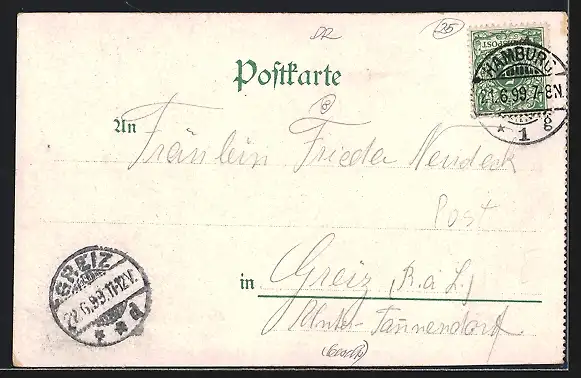 DR
25
POST
HAMBURG
21.6.99.7-8N.
* 1 g
Postkarte
8
An Fräulein Frieda Neudeck
Post
in Greiz (R. ä. L.)
Unter-Tannendorf
GREIZ
22.6.99.11-12V.
* * d